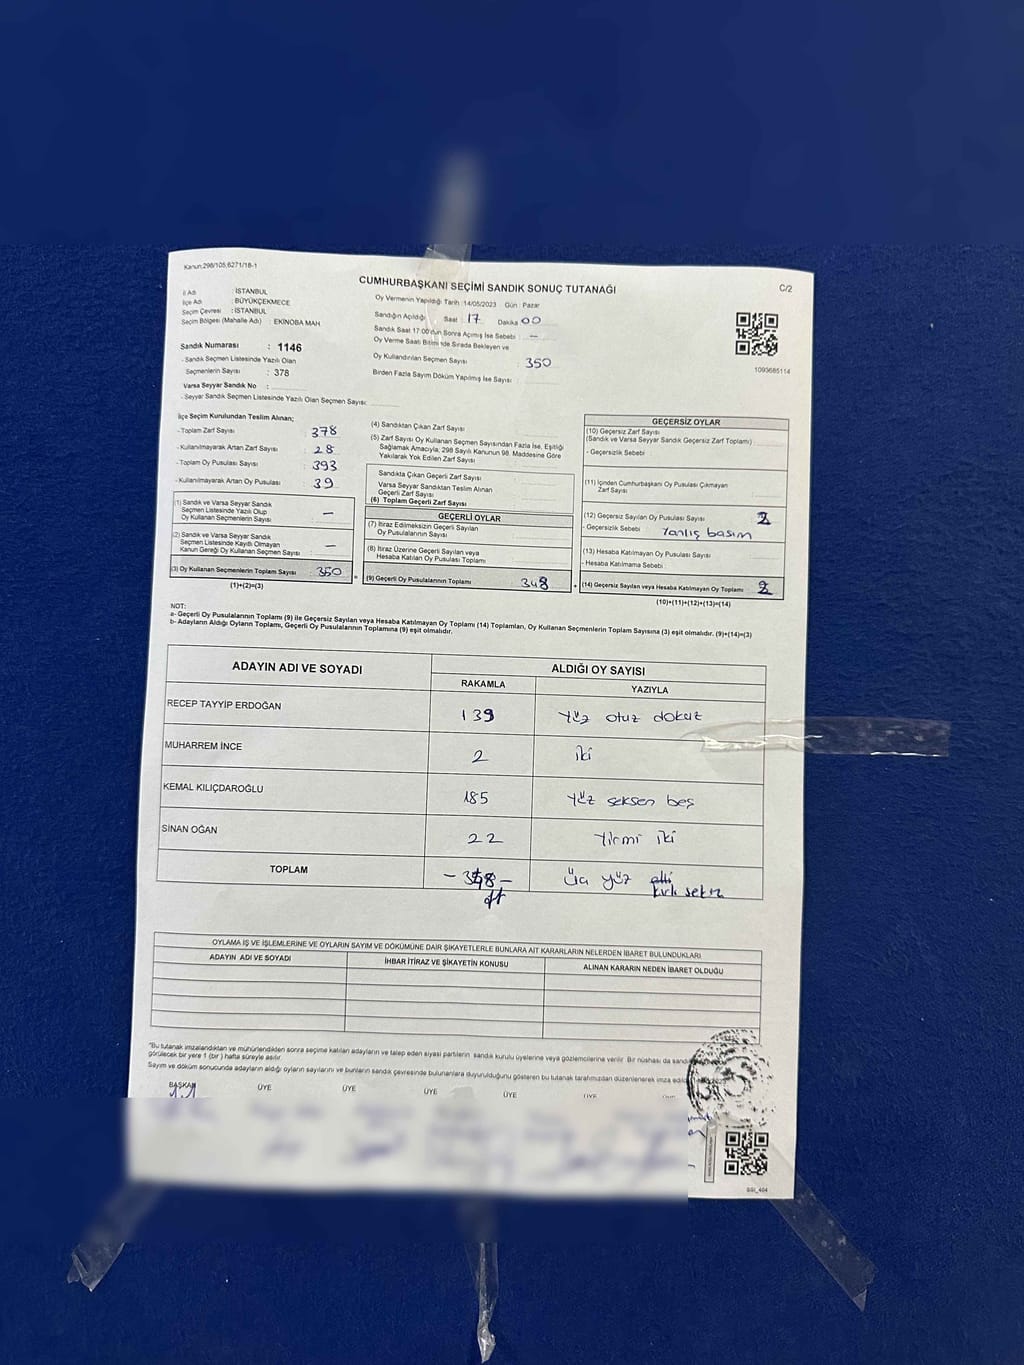 Kanun:298/105,6271/18-1
CUMHURBAŞKANI SEÇİMİ SANDIK SONUÇ TUTANAĞI
C/2
İl Adı : İSTANBUL
İlçe Adı : BÜYÜKÇEKMECE
Seçim Çevresi : İSTANBUL
Seçim Bölgesi (Mahalle Adı) : EKİNOBA MAH
Sandık Numarası : 1146
- Sandık Seçmen Listesinde Yazılı Olan
Seçmenlerin Sayısı : 378
Varsa Seyyar Sandık No :
- Seyyar Sandık Seçmen Listesinde Yazılı Olan Seçmen Sayısı:
Oy Vermenin Yapıldığı Tarih :14/05/2023 Gün : Pazar
Sandığın Açıldığı Saat : 17 Dakika 00
Sandık Saat 17:00'dan Sonra Açılmış İse Sebebi : -
Oy Verme Saati Bitiminde Sırada Bekleyen ve
Oy Kullandırılan Seçmen Sayısı : 350
Birden Fazla Sayım Döküm Yapılmış İse Sayısı :
1093685114
İlçe Seçim Kurulundan Teslim Alınan;
- Toplam Zarf Sayısı : 378
- Kullanılmayarak Artan Zarf Sayısı : 28
- Toplam Oy Pusulası Sayısı : 393
- Kullanılmayarak Artan Oy Pusulası : 39
(1) Sandık ve Varsa Seyyar Sandık
Seçmen Listesinde Yazılı Olup
Oy Kullanan Seçmenlerin Sayısı : -
(2) Sandık ve Varsa Seyyar Sandık
Seçmen Listesinde Kayıtlı Olmayan
Kanun Gereği Oy Kullanan Seçmen Sayısı : -
(3) Oy Kullanan Seçmenlerin Toplam Sayısı : 350
(1)+(2)=(3)
(4) Sandıktan Çıkan Zarf Sayısı
(5) Zarf Sayısı Oy Kullanan Seçmen Sayısından Fazla İse, Eşitliği
Sağlamak Amacıyla, 298 Sayılı Kanunun 98. Maddesine Göre
Yakılarak Yok Edilen Zarf Sayısı
Sandıkta Çıkan Geçerli Zarf Sayısı
Varsa Seyyar Sandıktan Teslim Alınan
Geçerli Zarf Sayısı
(6) Toplam Geçerli Zarf Sayısı
GEÇERLİ OYLAR
(7) İtiraz Edilmeksizin Geçerli Sayılan
Oy Pusulalarının Sayısı
(8) İtiraz Üzerine Geçerli Sayılan veya
Hesaba Katılan Oy Pusulası Toplamı
(9) Geçerli Oy Pusulalarının Toplamı 348
GEÇERSİZ OYLAR
(10) Geçersiz Zarf Sayısı
(Sandık ve Varsa Seyyar Sandık Geçersiz Zarf Toplamı)
- Geçersizlik Sebebi
(11) İçinden Cumhurbaşkanı Oy Pusulası Çıkmayan
Zarf Sayısı
(12) Geçersiz Sayılan Oy Pusulası Sayısı : 2
- Geçersizlik Sebebi Yanlış basım
(13) Hesaba Katılmayan Oy Pusulası Sayısı :
- Hesaba Katılmama Sebebi
(14) Geçersiz Sayılan veya Hesaba Katılmayan Oy Toplamı : 2
(10)+(11)+(12)+(13)=(14)
NOT:
a- Geçerli Oy Pusulalarının Toplamı (9) ile Geçersiz Sayılan veya Hesaba Katılmayan Oy Toplamı (14) Toplamları, Oy Kullanan Seçmenlerin Toplam Sayısına (3) eşit olmalıdır. (9)+(14)=(3)
b- Adayların Aldığı Oyların Toplamı, Geçerli Oy Pusulalarının Toplamına (9) eşit olmalıdır.
ADAYIN ADI VE SOYADI ALDIĞI OY SAYISI
RAKAMLA YAZIYLA
RECEP TAYYİP ERDOĞAN 139 Yüz otuz dokuz
MUHARREM İNCE 2 iki
KEMAL KILIÇDAROĞLU 185 Yüz seksen beş
SİNAN OĞAN 22 Yirmi iki
TOPLAM -348- Üç yüz elli
kırk sekiz
OYLAMA İŞ VE İŞLEMLERİNE VE OYLARIN SAYIM VE DÖKÜMÜNE DAİR ŞİKAYETLERLE BUNLARA AİT KARARLARIN NELERDEN İBARET BULUNDUKLARI
ADAYIN ADI VE SOYADI İHBAR İTİRAZ VE ŞİKAYETİN KONUSU ALINAN KARARIN NEDEN İBARET OLDUĞU
"Bu tutanak imzalandıktan ve mühürlendikten sonra seçime katılan adayların ve talep eden siyasi partilerin sandık kurulu üyelerine veya gözlemcilerine verilir. Bir nüshası da
görülecek bir yere 1 (bir) hafta süreyle asılır.
Sayım ve döküm sonucunda adayların aldığı oyların sayılarını ve bunların sandık çevresinde bulunanlara duyurulduğunu gösteren bu tutanak tarafımızdan düzenlenerek imza
BAŞKAN ÜYE ÜYE ÜYE ÜYE ÜYE
SSI_404